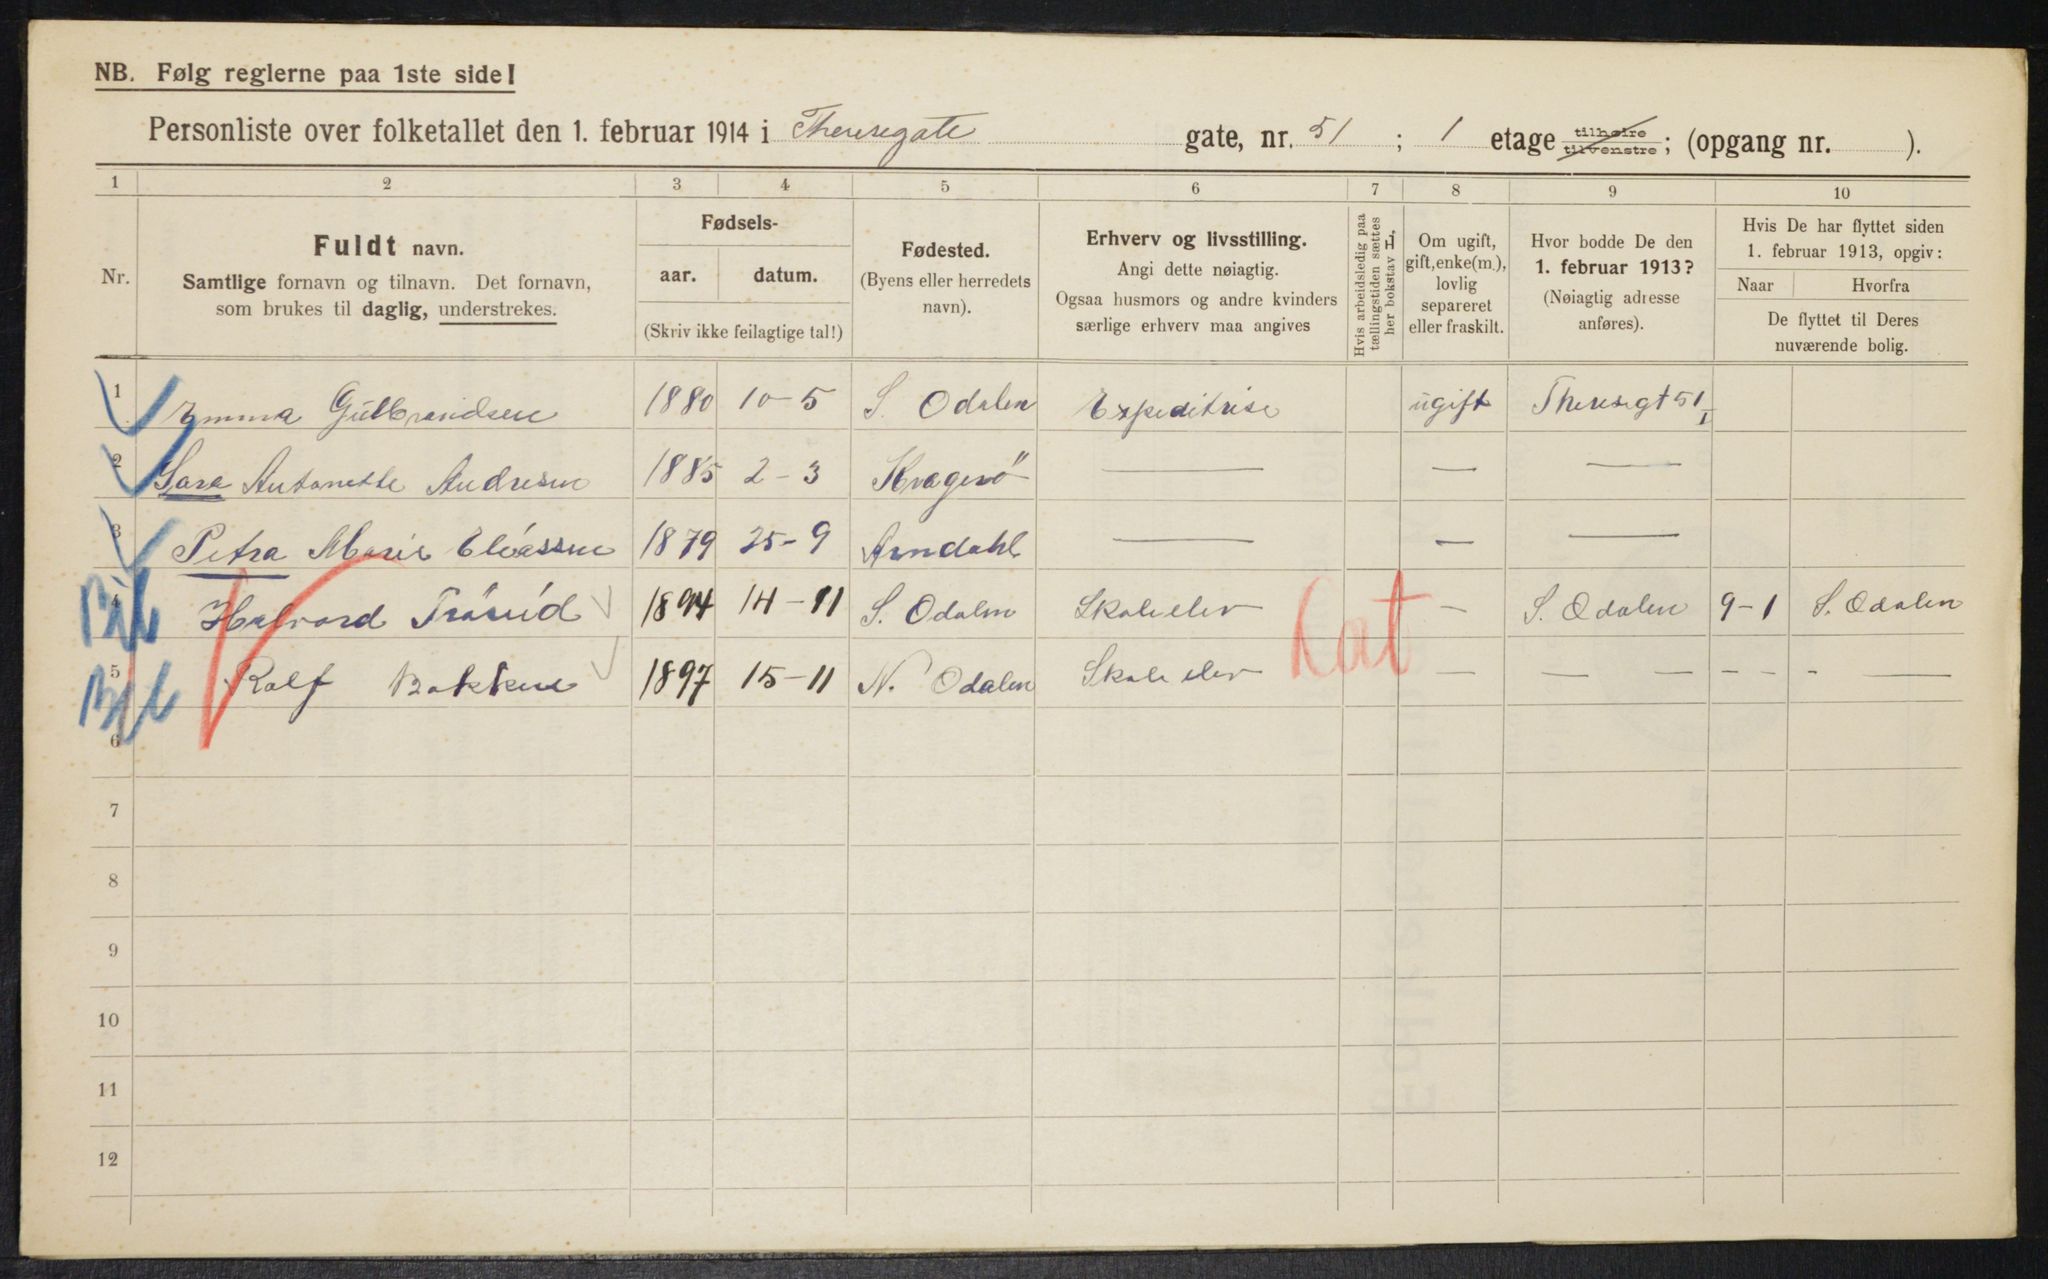 NB. Følg reglerne paa 1ste side!
Personliste over folketallet den 1. februar 1914 i Theresegate gate, nr. 51 ; 1 etage tilhøire tilvenstre; (opgang nr. ).
1 2 3 4 5 6 7 8 9 10
Nr.
Fuldt navn.
Samtlige fornavn og tilnavn. Det fornavn,
som brukes til daglig, understrekes.
Fødsels-
aar. datum.
(Skriv ikke feilagtige tal!)
Fødested.
(Byens eller herredets
navn).
Erhverv og livsstilling.
Angi dette nøiagtig.
Ogsaa husmors og andre kvinders
særlige erhverv maa angives
Hvis arbeidsledig paa
tællingstiden sættes
her bokstav L,
Om ugift,
gift, enke(m.),
lovlig
separeret
eller fraskilt.
Hvor bodde De den
1. februar 1913?
(Nøiagtig adresse
anføres).
Hvis De har flyttet siden
1. februar 1913, opgiv:
Naar Hvorfra
De flyttet til Deres
nuværende bolig.
1 Emma Gulbrandsen 1880 10-5 S. Odalen Expeditrise ugift Theresegt 51 I
2 Sara Antonette Andresen 1885 2-3 Kragerö — — —
3 Petra Marie Eliassen 1879 25-9 Arndahl — — —
4 Halvard Trösud 1894 14-11 S. Odalen Skoleelev — S. Odalen 9-1 S. Odalen
5 Rolf Bakken 1897 15-11 N. Odalen Skoleelev — — — - - - - —
6
7
8
9
10
11
12